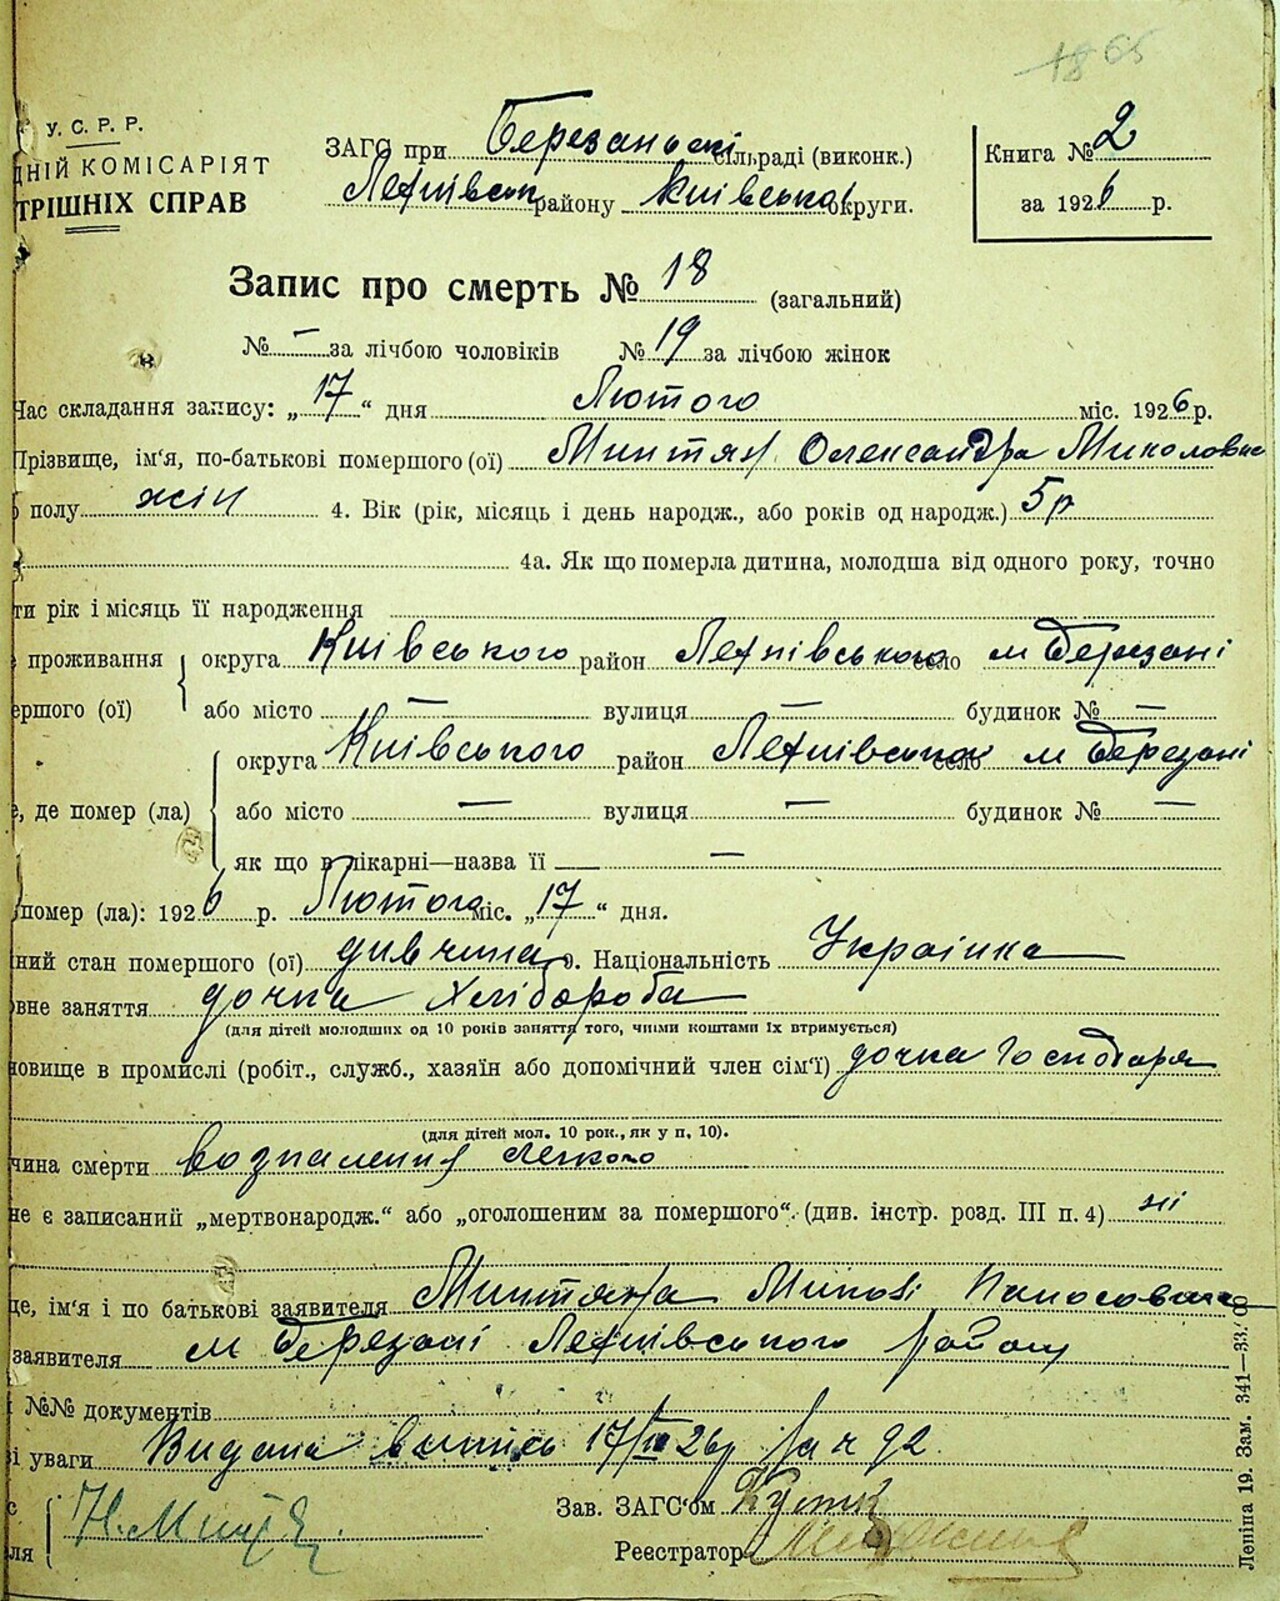 1865
У. С. Р. Р.
ДНІЙ КОМІСАРІЯТ
ТРІШНІХ СПРАВ
ЗАГС при Березанській сільраді (виконк.)
району Київської округи.
Книга № 2
за 1926 р.
Запис про смерть № 18 (загальний)
№ — за лічбою чоловіків № 19 за лічбою жінок
Час складання запису: „17“ дня Лютого міс. 1926 р.
Прізвище, ім‘я, по-батькові помершого (ої) Миптян Олександра Миколовна
полу жін 4. Вік (рік, місяць і день народж., або років од народж.) 5 р
4а. Як що померла дитина, молодша від одного року, точно
ти рік і місяць її народження
проживання округа Київського район село м Березані
ершого (ої) або місто — вулиця — будинок № —
округа Київського район село м Березані
, де помер (ла) або місто — вулиця — будинок № —
як що в лікарні—назва її —
помер (ла): 1926 р. Лютого міс. „17“ дня.
ний стан помершого (ої) дивчина 9. Національність Украінка
вне заняття дочка Хлібороба
(для дітей молодших од 10 років заняття того, чиїми коштами їх втримується)
новище в промислі (робіт., служб., хазяїн або допомічний член сім‘ї) дочка Господаря
(для дітей мол. 10 рок., як у п. 10).
чина смерти возпаления легкого
не є записаний „мертвонародж.“ або „оголошеним за помершого“. (див. інстр. розд. III п. 4) ні
це, ім‘я і по батькові заявителя
заявителя м Березані району
№№ документів
і уваги Видана випись 17/II 26 р за ч 92
Н. Миптян
ля
Зав. ЗАГС‘ом
Реєстратор
Леніна 19. Зам. 341—33.000